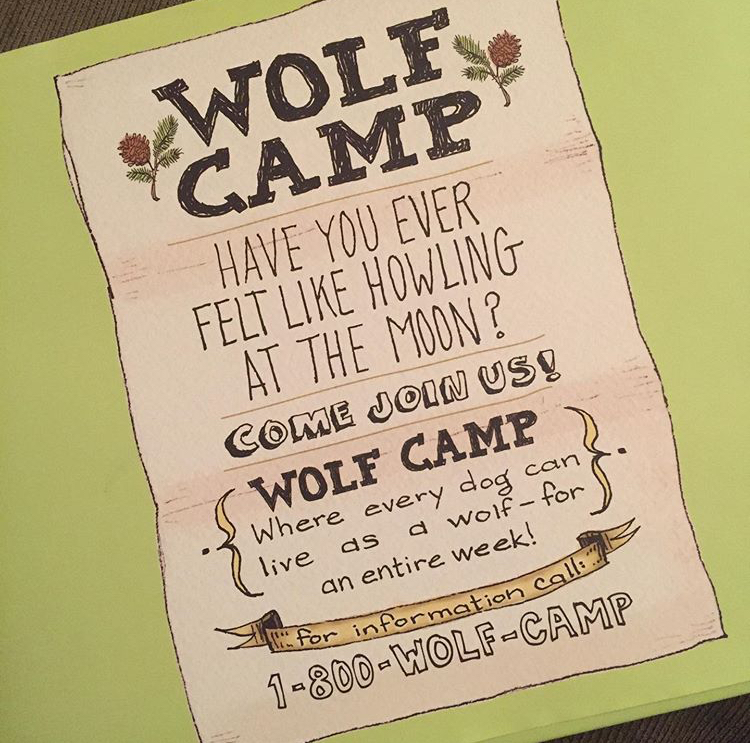 WOLF
CAMP
HAVE YOU EVER
FELT LIKE HOWLING
AT THE MOON?
COME JOIN US!
WOLF CAMP
Where every dog can
live as a wolf-for
an entire week!
for information call:
1-800-WOLF-CAMP